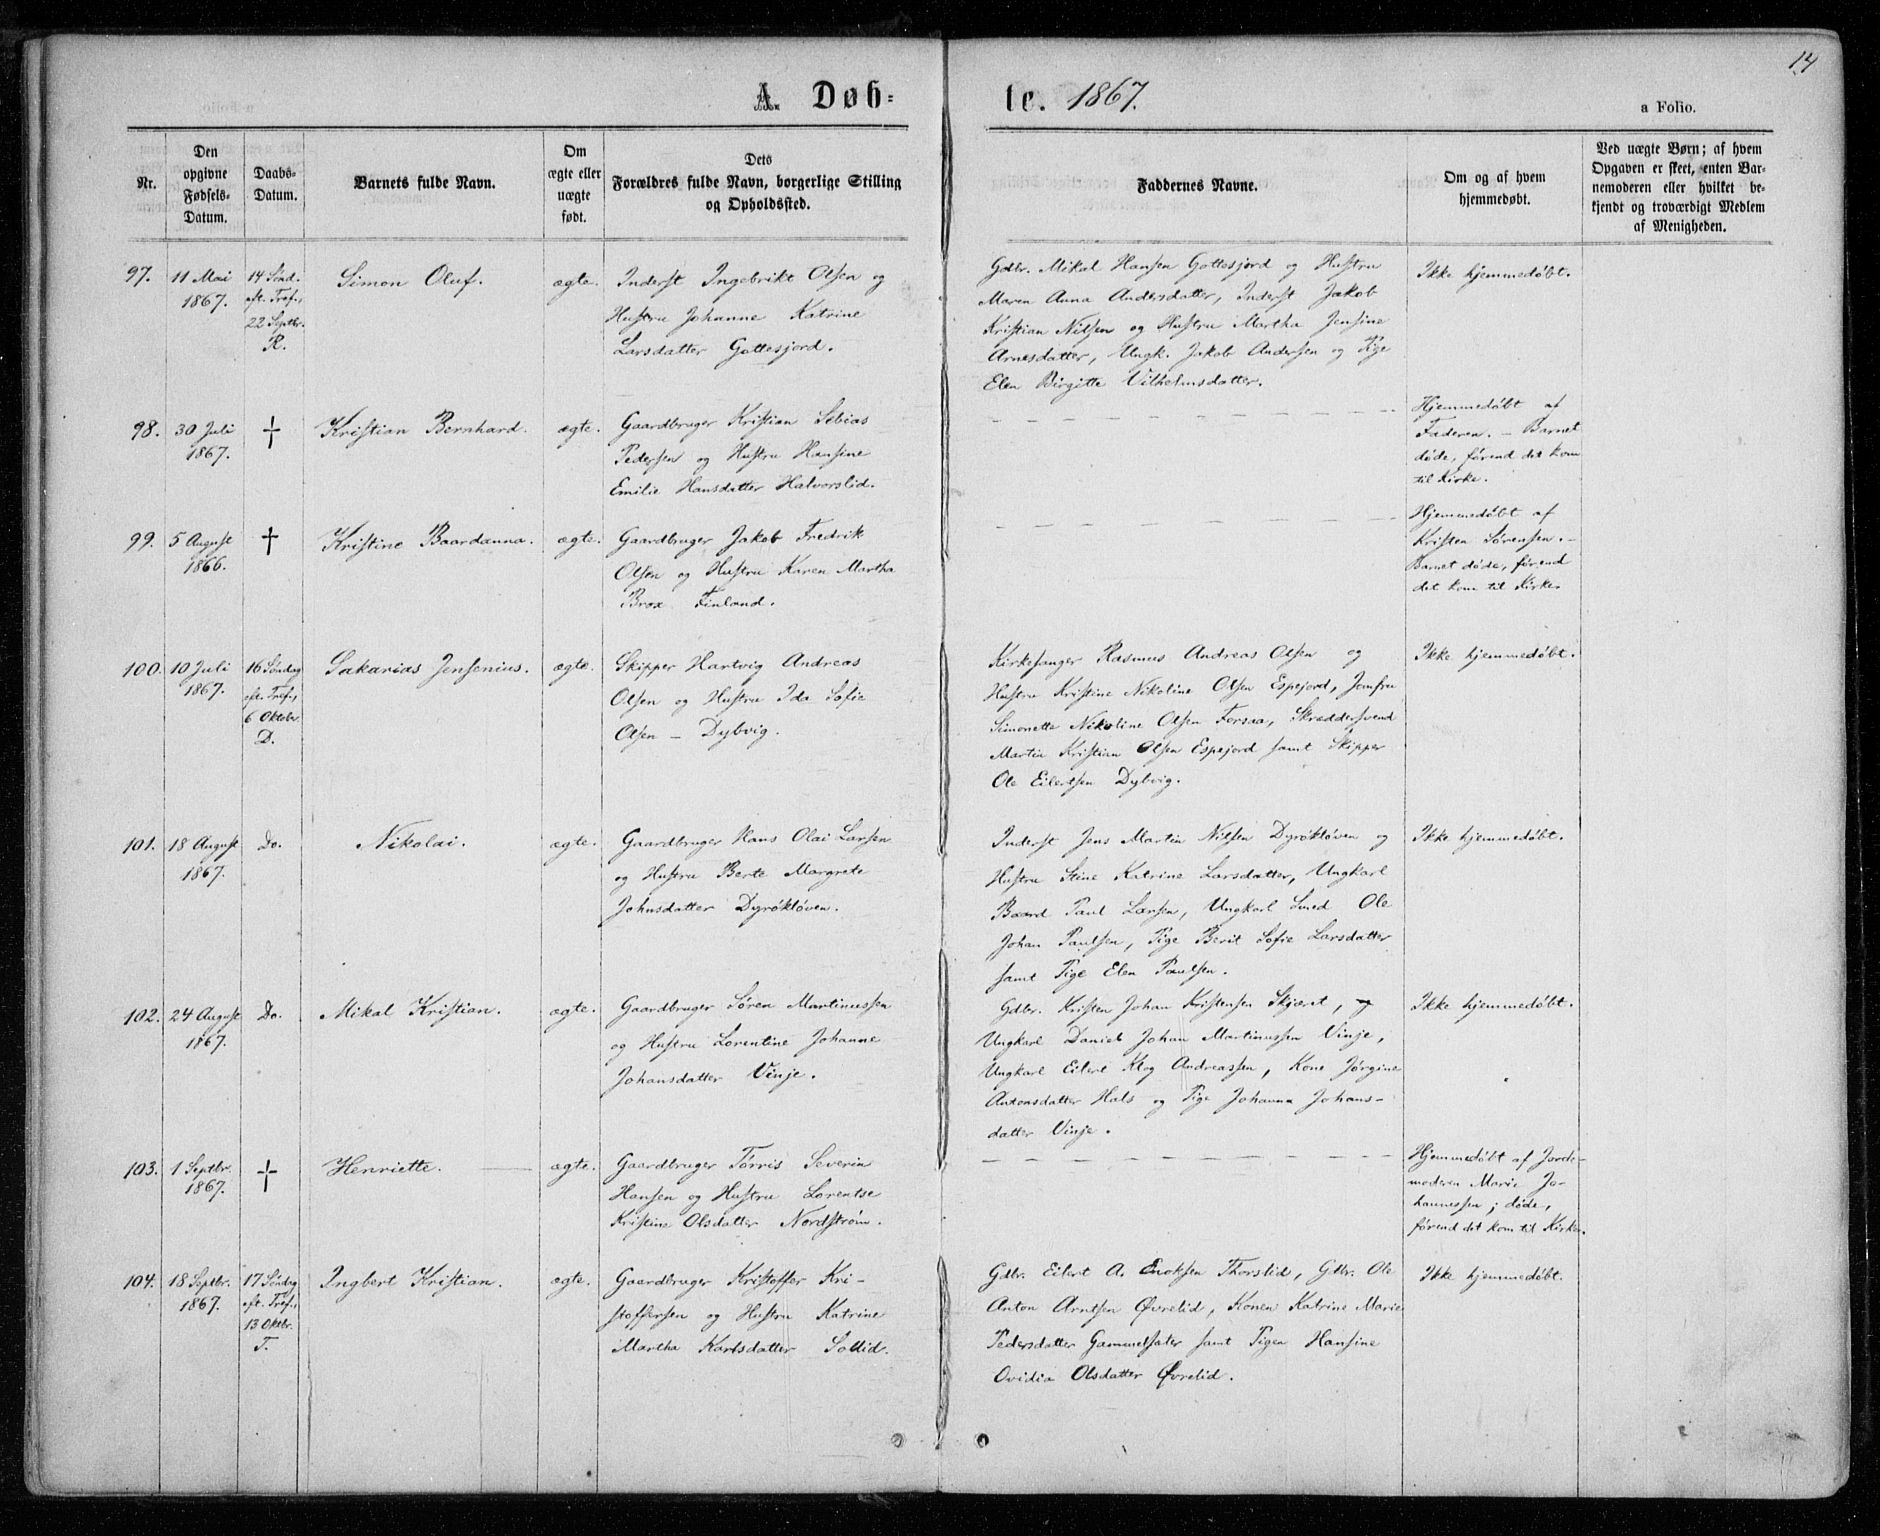 14
A. Døb=
te. 1867.
a Folio.
Nr.
Den
opgivne
Fødsels-
Datum.
Daabs-
Datum.
Barnets fulde Navn.
Om
ægte eller
uægte
født.
Dets
Forældres fulde Navn, borgerlige Stilling
og Opholdssted.
Faddernes Navne.
Om og af hvem
hjemmedøbt.
Ved uægte Børn; af hvem
Opgaven er skeet, enten Bar-
nemoderen eller hvilket be-
kjendt og troværdigt Medlem
af Menigheden.
97.
11 Mai
1867.
14 Sønd.
eft. Tref.,
22 Septbr.
R.
Simon Oluf.
ægte.
Inderst Ingebrikt Olsen og
Hustru Johanne Katrine
Larsdatter Gottesjord.
Gdbr. Mikal Hansen Gottesjord og Hustru
Maren Anna Andersdatter, Inderst Jakob
Kristian Nilsen og Hustru Martha Jensine
Arnesdatter, Ungk. Jakob Andersen og Pige
Elen Birgitte Vilhelmsdatter.
Ikke hjemmedøbt.
98.
30 Juli
1867.
†
Kristian Bernhard.
ægte.
Gaardbruger Kristian Sebias
Pedersen og Hustru Hansine
Emilie Hansdatter Halvorslid.
Hjemmedøbt af
Faderen. – Barnet
døde, førend det kom
til Kirke.
99.
5 August
1866.
†
Kristine Baardanna.
ægte.
Gaardbruger Jakob Fredrik
Olsen og Hustru Karen Martha
Brox Finland.
Hjemmedøbt af
Kristen Sørensen. –
Barnet døde, førend
det kom til Kirke.
100.
10 Juli
1867.
16 Søndag
eft. Tref.,
6 Oktobr.
D.
Sakarias Jensenius.
ægte.
Skipper Hartvig Andreas
Olsen og Hustru Ida Sofie
Olsen – Dybvig.
Kirkesanger Rasmus Andreas Olsen og
Hustru Kristine Nikoline Olsen Espejord, Jomfru
Simonette Nikoline Olsen Forsaa, Skræddersvend
Martin Kristian Olsen Espejord samt Skipper
Ole Eilertsen Dybvig.
Ikke hjemmedøbt.
101.
18 August
1867.
Do.
Nikolai.
ægte.
Gaardbruger Hans Olai Larsen
og Hustru Berte Margrete
Johnsdatter Dyrøkløven.
Inderst Jens Martin Nilsen Dyrøkløven og
Hustru Stine Katrine Larsdatter, Ungkarl
Baard Paul Larsen, Ungkarl Smed Ole
Johan Paulsen, Pige Berit Sofie Larsdatter
samt Pige Elen Paulsen.
Ikke hjemmedøbt.
102.
24 August
1867.
Do.
Mikal Kristian.
ægte.
Gaardbruger Søren Martinussen
og Hustru Lorentine Johanne
Johansdatter Vinje.
Gdbr. Kristen Johan Kristensen Skjæret, og
Ungkarl Daniel Johan Martinussen Vinje,
Ungkarl Eilert Klog Andreassen, Kone Jørgine
Antonsdatter Hals og Pige Johanna Johans-
datter Vinje.
Ikke hjemmedøbt.
103.
1 Septbr.
1867.
†
Henriette.
ægte.
Gaardbruger Tørris Severin
Hansen og Hustru Lorentse
Kristine Olsdatter Nordstrøm.
Hjemmedøbt af Jorde-
moderen Marie Jo-
hannessen; døde,
førend det kom til Kirke.
104.
18 Septbr.
1867.
17 Søndag
eft. Tref.,
13 Oktbr.
T.
Ingbert Kristian.
ægte.
Gaardbruger Kristoffer Kri-
stoffersen og Hustru Katrine
Martha Karlsdatter Sollid.
Gdbr. Eilert A. Enoksen Thorslid, Gdbr. Ole
Anton Arntsen Øvrelid, Konen Katrine Marie
Pedersdatter Gammelsæter samt Pigen Hansine
Ovidia Olsdatter Øvrelid.
Ikke hjemmedøbt.